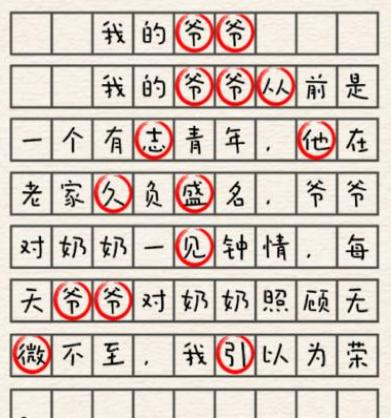 我的爷爷
我的爷爷从前是
一个有志青年，他在
老家久负盛名，爷爷
对奶奶一见钟情，每
天爷爷对奶奶照顾无
微不至，我引以为荣
。